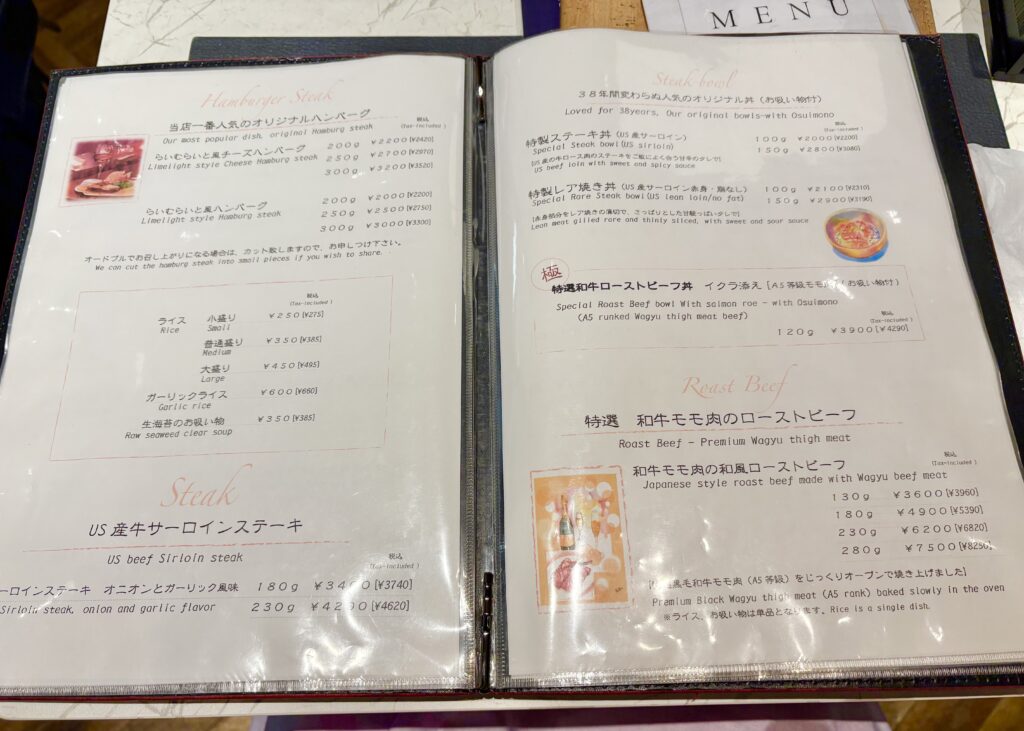 MENU
Hamburger Steak
当店一番人気のオリジナルハンバーグ
Our most popular dish, original Hamburg steak
税込
(Tax-included)
らいむらいと風チーズハンバーグ 200g ¥2200[¥2420]
Limelight style Cheese Hamburg steak 250g ¥2700[¥2970]
300g ¥3200[¥3520]
らいむらいと風ハンバーグ 200g ¥2000[¥2200]
Limelight style Hamburg steak 250g ¥2500[¥2750]
300g ¥3000[¥3300]
オードブルでお召し上がりになる場合は、カット致しますので、お申しつけ下さい。
We can cut the hamburg steak into small pieces if you wish to share.
税込
(Tax-included)
ライス 小盛り ¥250[¥275]
Rice Small
普通盛り ¥350[¥385]
Medium
大盛り ¥450[¥495]
Large
ガーリックライス ¥600[¥660]
Garlic rice
生海苔のお吸い物 ¥350[¥385]
Raw seaweed clear soup
Steak
US産牛サーロインステーキ
US beef Sirloin steak
税込
(Tax-included)
ーロインステーキ オニオンとガーリック風味 180g ¥3400[¥3740]
Sirloin steak, onion and garlic flavor 230g ¥4200[¥4620]
Steak bowl
38年間変わらぬ人気のオリジナル丼(お吸い物付)
Loved for 38years, Our original bowls-with Osuimono
税込
(Tax-included)
特製ステーキ丼(US産サーロイン) 100g ¥2000[¥2200]
Special Steak bowl(US sirloin) 150g ¥2800[¥3080]
[US産の牛ロース肉のステーキをご飯によく合う甘辛のタレで]
US beef loin with sweet and spicy sauce
特製レア焼き丼(US産サーロイン赤身・脂なし) 100g ¥2100[¥2310]
Special Rare Steak bowl(US lean loin/no fat) 150g ¥2900[¥3190]
[赤身部分をレア焼きの薄切で、さっぱりとした甘酸っぱいタレで]
Lean meat gilled rare and thinly sliced, with sweet and sour sauce
極
特選和牛ローストビーフ丼 イクラ添え[A5等級モモ肉](お吸い物付)
Special Roast Beef bowl With salmon roe - with Osuimono
(A5 runked Wagyu thigh meat beef)
税込
(Tax-included)
120g ¥3900[¥4290]
Roast Beef
特選 和牛モモ肉のローストビーフ
Roast Beef - Premium Wagyu thigh meat
和牛モモ肉の和風ローストビーフ
税込
(Tax-included)
Japanese style roast beef made with Wagyu beef meat
130g ¥3600[¥3960]
180g ¥4900[¥5390]
230g ¥6200[¥6820]
280g ¥7500[¥8250]
黒毛和牛モモ肉(A5等級)をじっくりオーブンで焼き上げました]
Premium Black Wagyu thigh meat (A5 rank) baked slowly in the oven
※ライス、お吸い物は単品となります。Rice is a single dish.